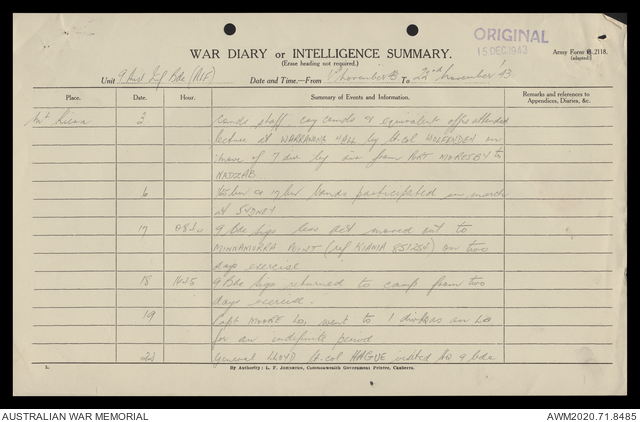 ORIGINAL
15 DEC 1943
WAR DIARY or INTELLIGENCE SUMMARY.
(Erase heading not required.)
Army Form C.2118.
(adapted)
Unit 9 Aust Inf Bde (AIF) Date and Time—From 1st November 43 To 22nd November '43
Place. Date. Hour. Summary of Events and Information. Remarks and references to Appendices, Diaries, &c.
Mt Kiera 2 Comds staff, coy comds & equivalent offrs attended
lecture at WARRAWONG HALL by Lt-col WOLFENDEN on
move of 7 div by air from PORT MORESBY to
NADZAB
6 bn & 17 bn bands participated in march
at SYDNEY
17 9 Bde hqs less det moved out to
MINNAMURRA POINT (ref KIAMA 851256) on two
days exercise
18 1445 9 Bde hqs returned to camp from two
days exercise.
19 Capt MOORE LO, went to 1 div as an LO
for an indefinite period
22 General LLOYD Lt-col HAGUE visited HQ 9 bde
By Authority: L. F. Johnston, Commonwealth Government Printer, Canberra.
AUSTRALIAN WAR MEMORIAL AWM2020.71.8485